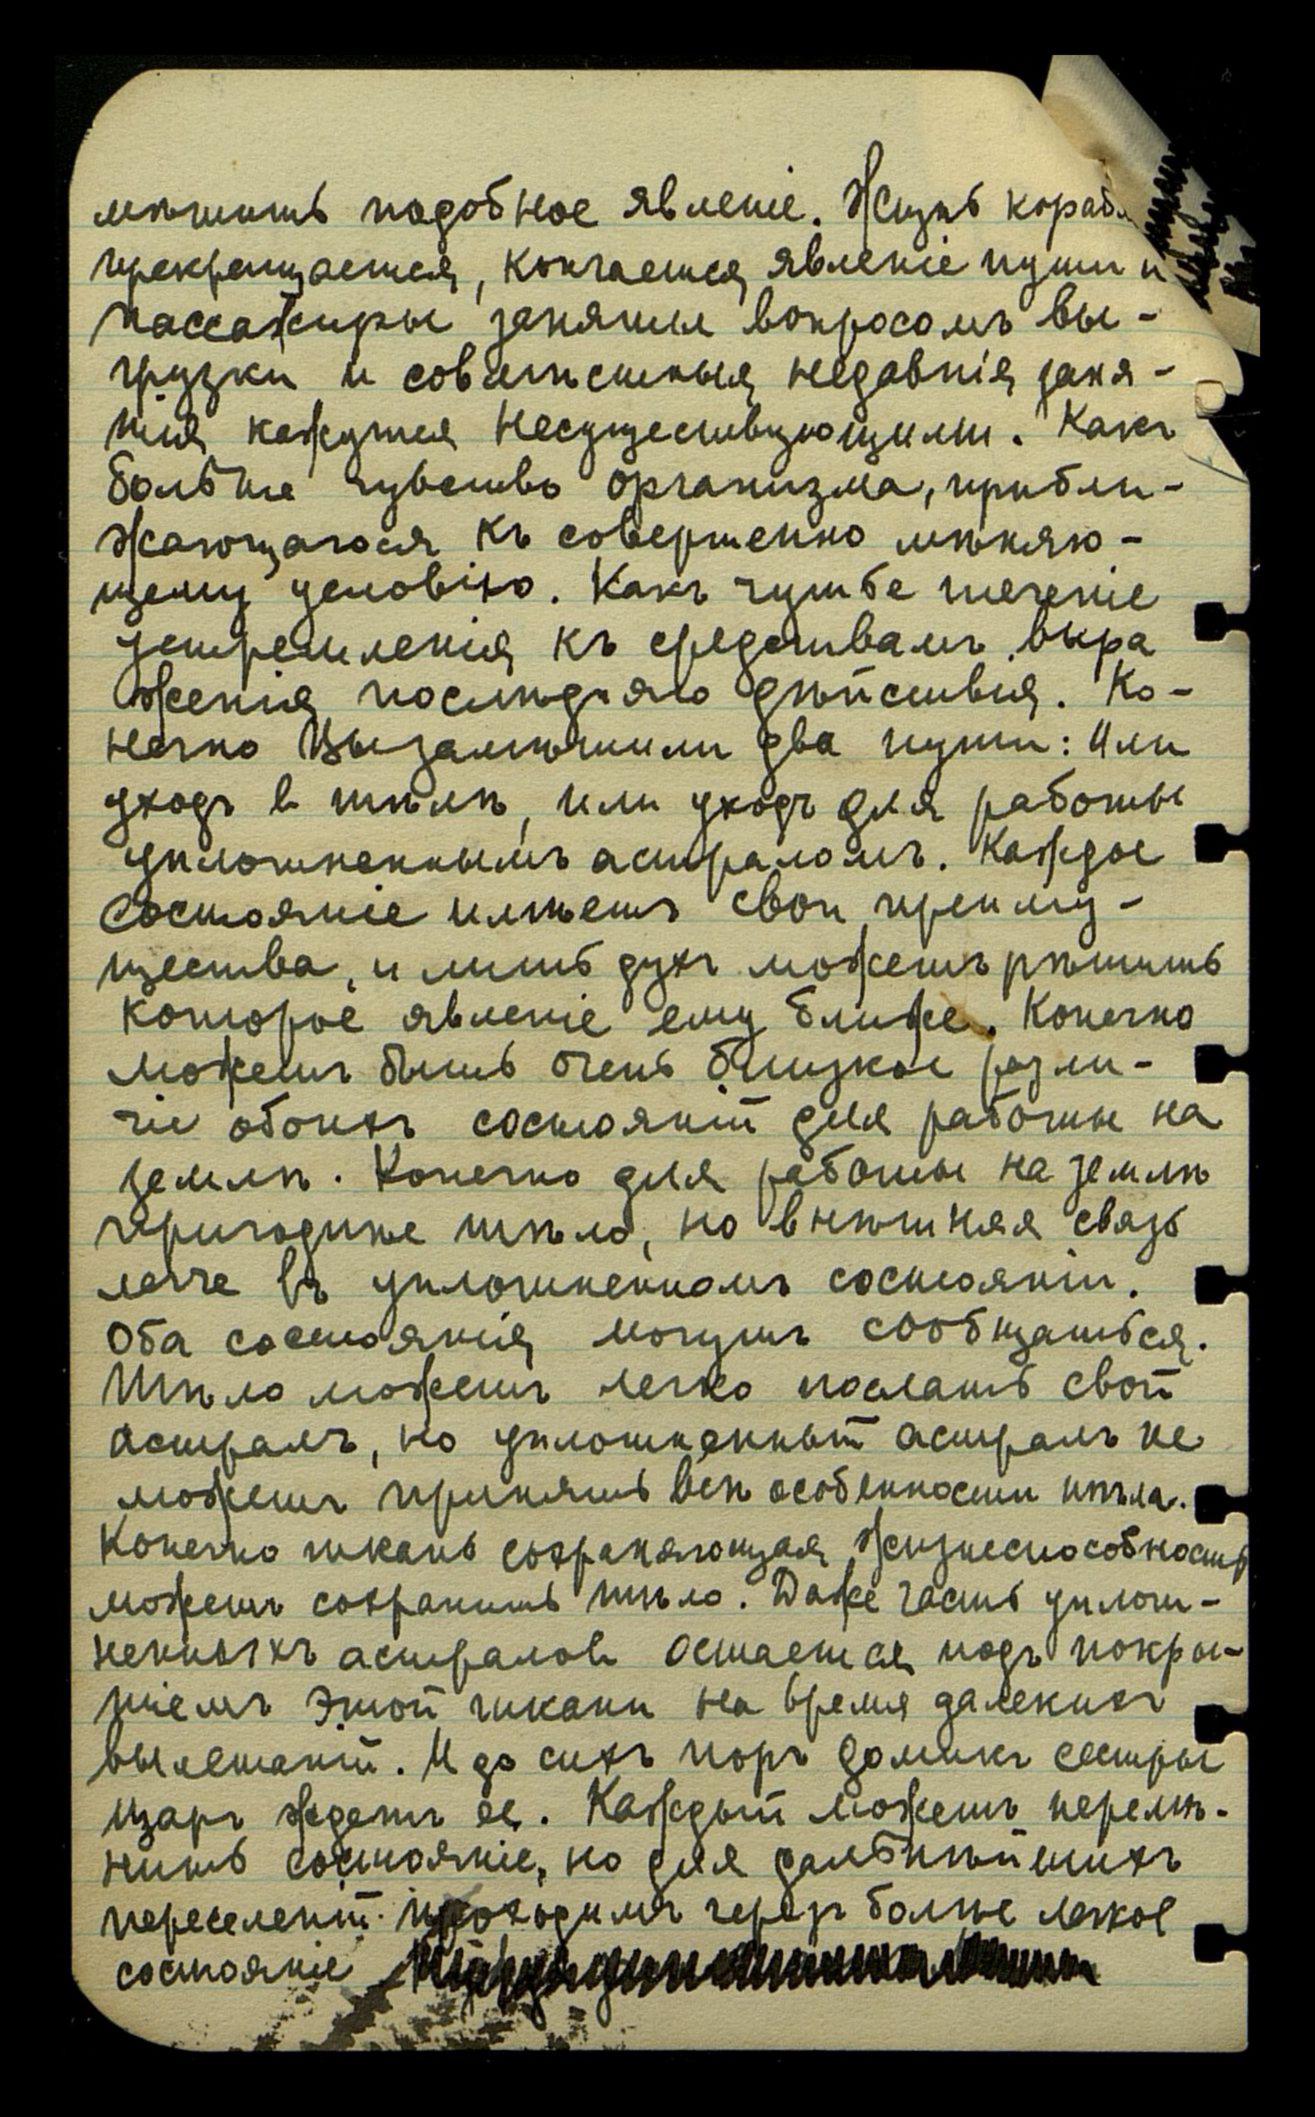 мѣтить подобное явленіе. Жизнь корабл
прекращается, кончается явленіе пути и
пассажиры заняты вопросомъ вы-
грузки и совмѣстныя недавнія заня-
тія кажутся несуществующими. Какъ
больше чувство организма, прибли-
жающагося къ совершенно мѣняю-
щему условію. Какъ чутье теченіе
устремленія къ средствамъ выра
женія послѣдняго дѣйствія. Ко-
нечно Вы замѣтили два пути: Или
уходъ в тѣлѣ, или уходъ для работы
уплотненнымъ астраломъ. Каждое
состояніе имѣетъ свои преиму-
щества, и лишь духъ можетъ рѣшить
которое явленіе ему ближе. Конечно
можетъ быть очень близкое разли-
чіе обоихъ состояній для работы на
землѣ. Конечно для работы на землѣ
пригоднѣе тѣло, но внѣшняя связь
легче въ уплотненномъ состояніи.
Оба состоянія могутъ сообщаться.
Тѣло можетъ легко послать свой
астралъ, но уплотненный астралъ не
можетъ принять всѣ особенности тѣла.
Конечно ткань сохраняющая жизнеспособность
можетъ сохранить тѣло. Даже часть уплот-
ненныхъ астралов остается подъ покры-
тіемъ этой ткани на время далекихъ
вылетаній. И до сихъ поръ домикъ сестры
царъ ждетъ ее. Каждый можетъ перемѣ-
нить состояніе, но для дальнѣйшихъ
переселеній проходимъ черезъ болѣе легкое
состояніе